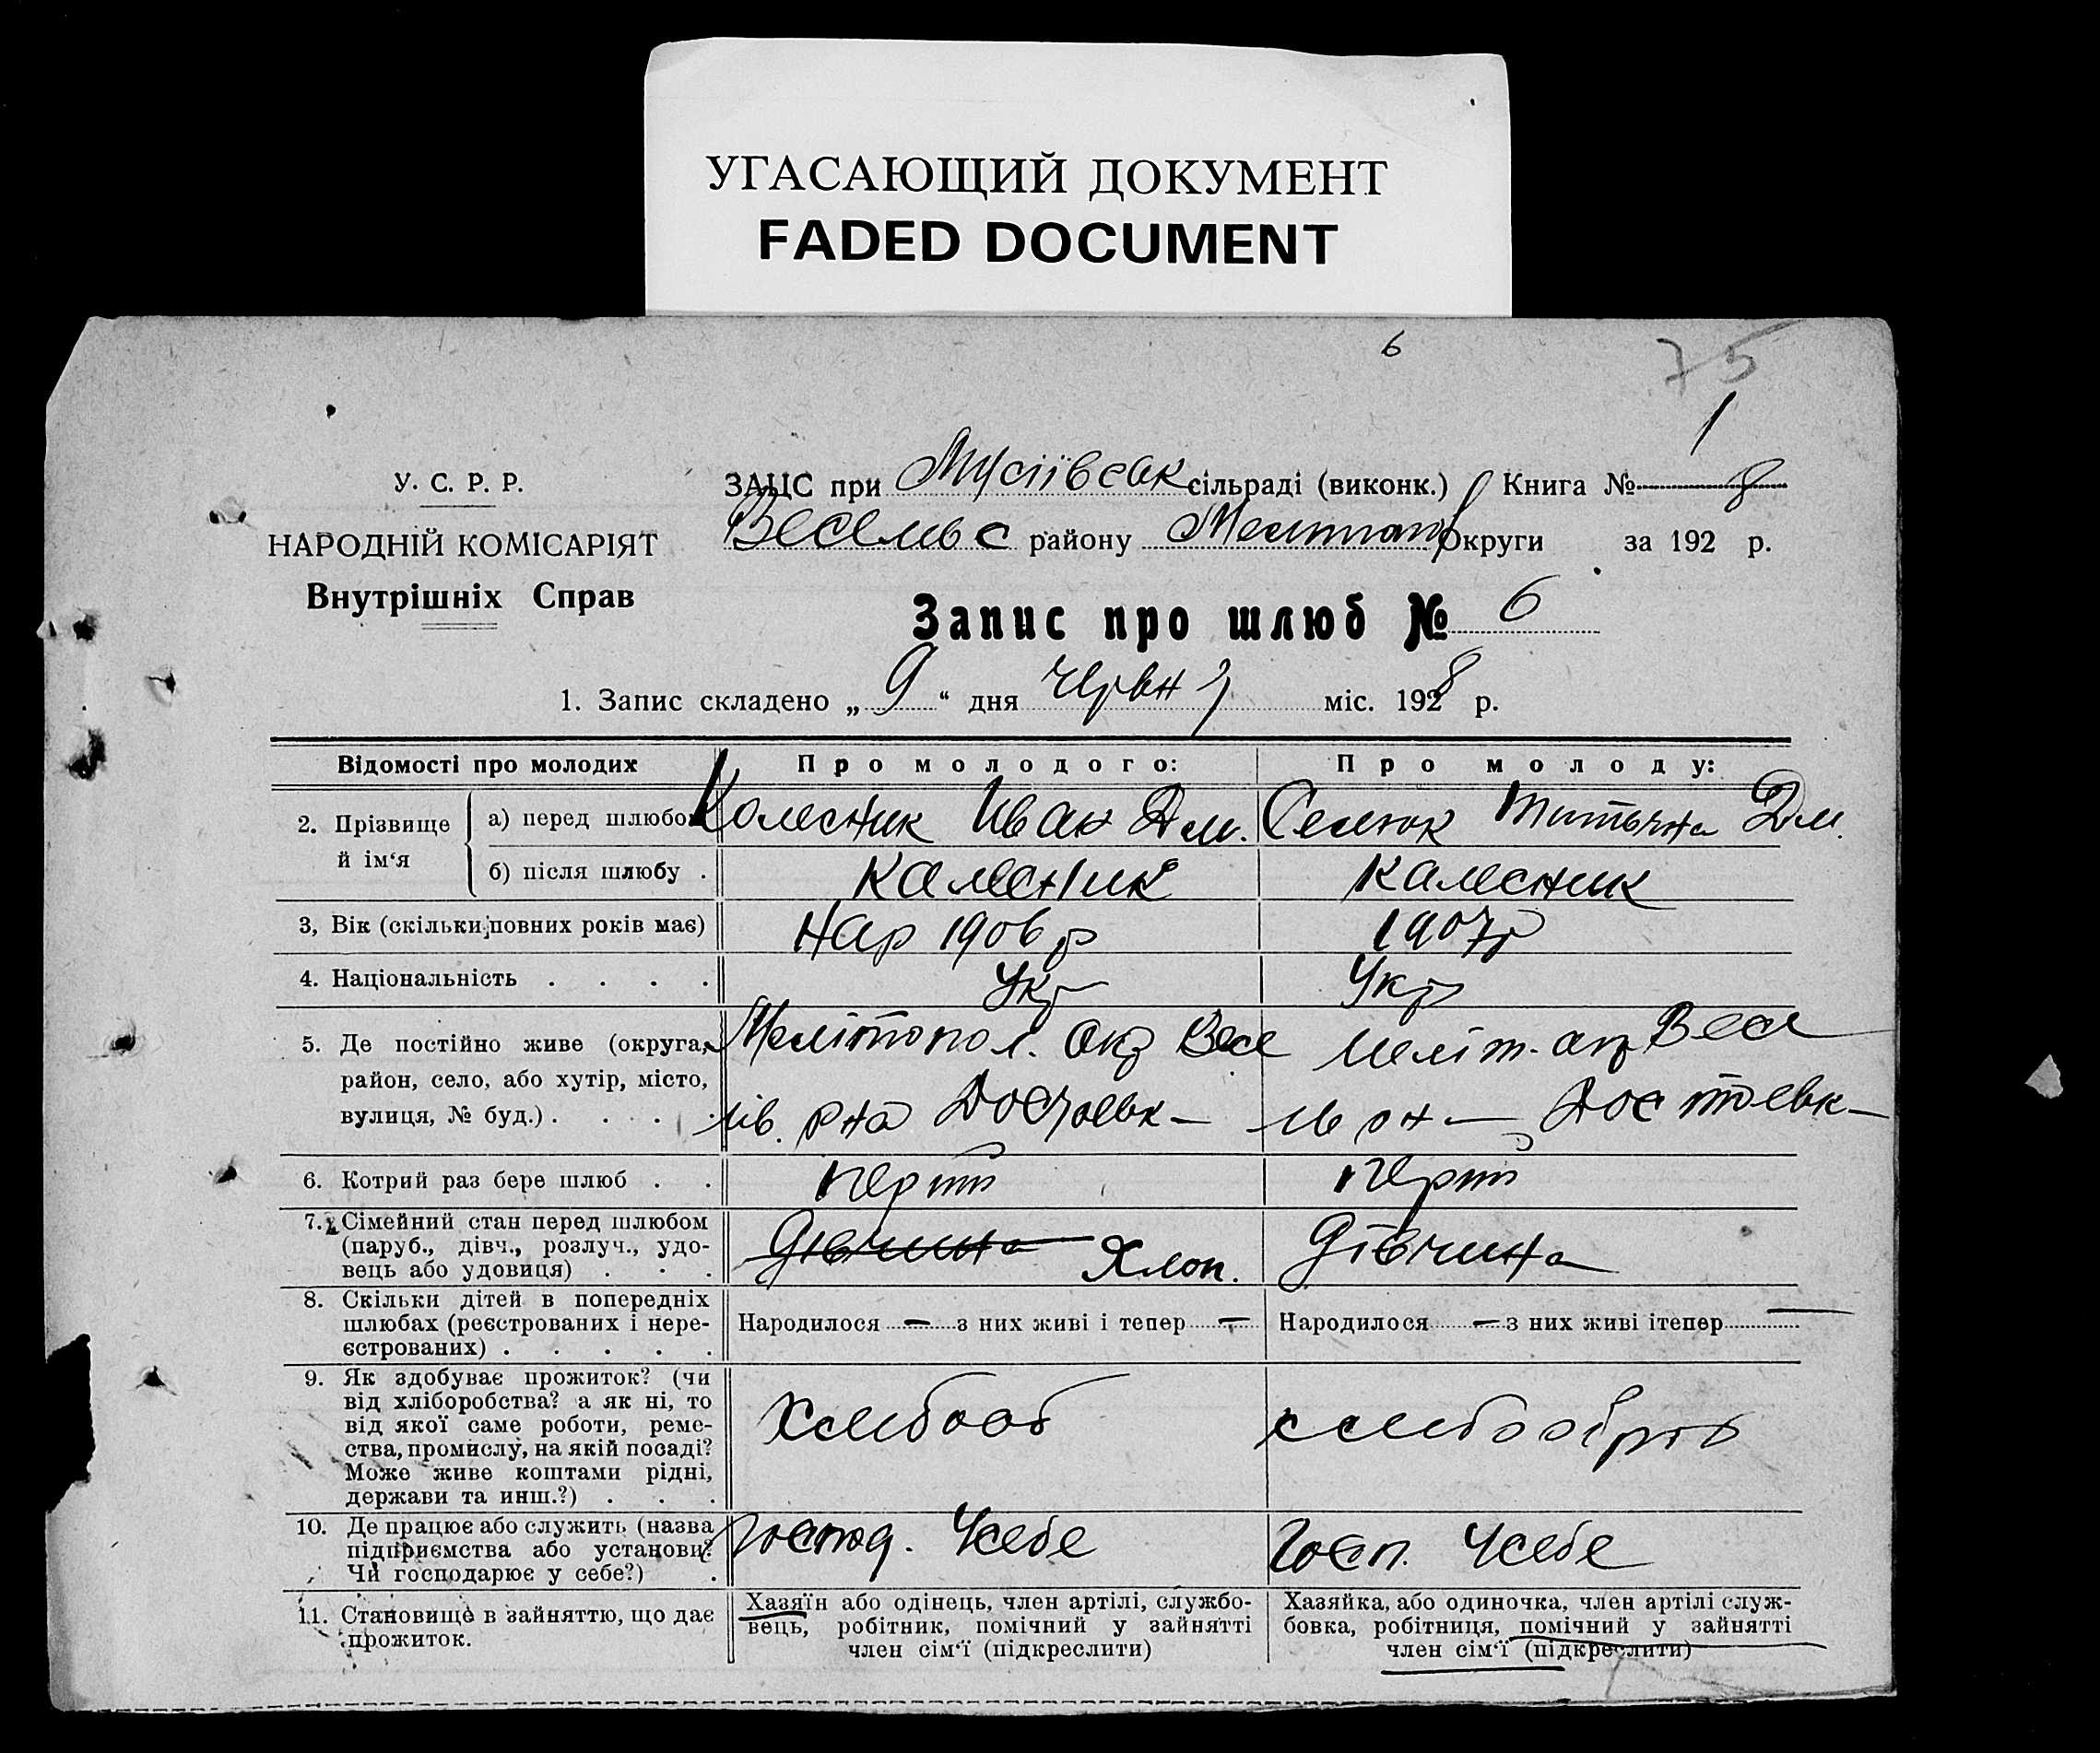 УГАСАЮЩИЙ ДОКУМЕНТ
FADED DOCUMENT
6
75
1
У. С. Р. Р.
НАРОДНІЙ КОМІСАРІЯТ
Внутрішніх Справ
ЗАЦС при Мусіївськ сільраді (виконк.) Книга №
Весельс району Меліттоп Округи за 192 8 р.
Запис про шлюб № 6
1. Запис складено „ 9 “ дня червня міс. 1928 р.
Відомості про молодих
Про молодого:
Про молоду:
2. Прізвище й ім‘я
а) перед шлюбом
Колесник Иван Дм.
Семюк Дм.
б) після шлюбу .
Калесник
Калесник
3, Вік (скільки повних років має)
Нар 1906 р
1907р
4. Національність . . . .
Укр
Укр
5. Де постійно живе (округа,
район, село, або хутір, місто,
вулиця, № буд.) . . . .
Мелітопол. Окр Весе
лів. рна
Меліт. окр Весе
6. Котрий раз бере шлюб . .
перший
перший
7. Сімейний стан перед шлюбом
(паруб., дівч., розлуч., удо-
вець або удовиця) . . .
Дівчина Хлоп.
Дівчина
8. Скільки дітей в попередніх
шлюбах (реєстрованих і нере-
єстрованих) . . . . .
Народилося — з них живі і тепер —
Народилося — з них живі ітепер —
9. Як здобуває прожиток? (чи
від хліборобства? а як ні, то
від якої саме роботи, реме-
ства, промислу, на якій посаді?
Може живе коштами рідні,
держави та инш.?) . . .
10. Де працює або служить (назва
підприємства або установи?
Чи господарює у себе?) .
Господ. Усебе
Госп. Усебе
11. Становище в зайняттю, що дає
прожиток.
Хазяїн або одінець, член артілі, службо-
вець, робітник, помічний у зайнятті
член сім‘ї (підкреслити)
Хазяйка, або одиночка, член артілі служ-
бовка, робітниця, помічний у зайнятті
член сім‘ї (підкреслити)